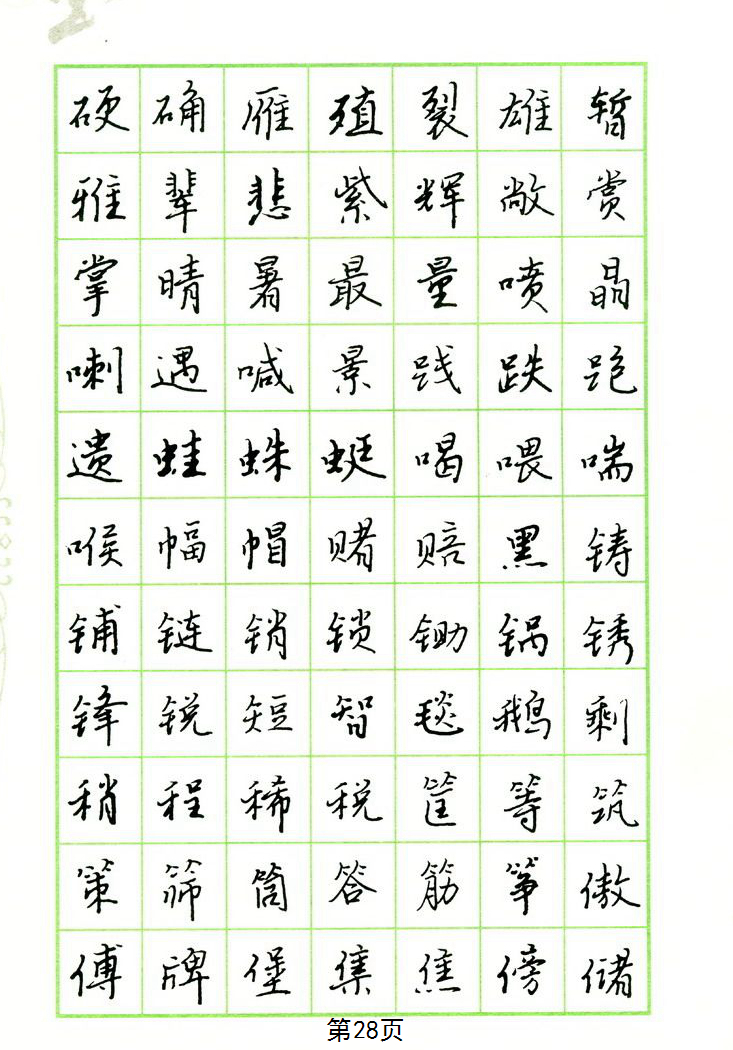 硬确雁殖裂雄暂
雅辈悲紫辉敞赏
掌晴暑最量喷晶
喇遇喊景践跌跑
遗蛙蛛蜓喝喂喘
喉幅帽赌赔黑铸
铺链销锁锄锅锈
锋锐短智毯鹅剩
稍程稀税筐等筑
策筛筒答筋筝傲
傅牌堡集焦傍储
第28页